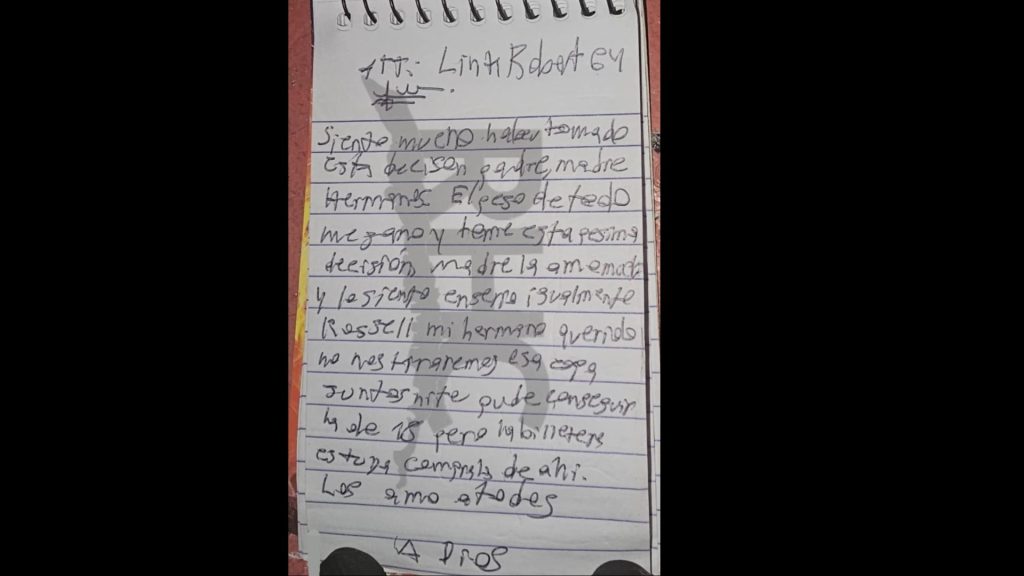 ATT: Linti Robert GY
Siento mucho haber tomado
esta decison padre, madre
Hermanos. El peso de todo
me gano y tome esta pesima
decisión, madre la amo mucho
y lo siento enserio igualmente
Rossell mi hermano querido
no nos tiraremos esa copa
juntos ni te pude conseguir
la de 18 pero la billetera
es tuya comprala de ahi.
Los amo a todos
A Dios